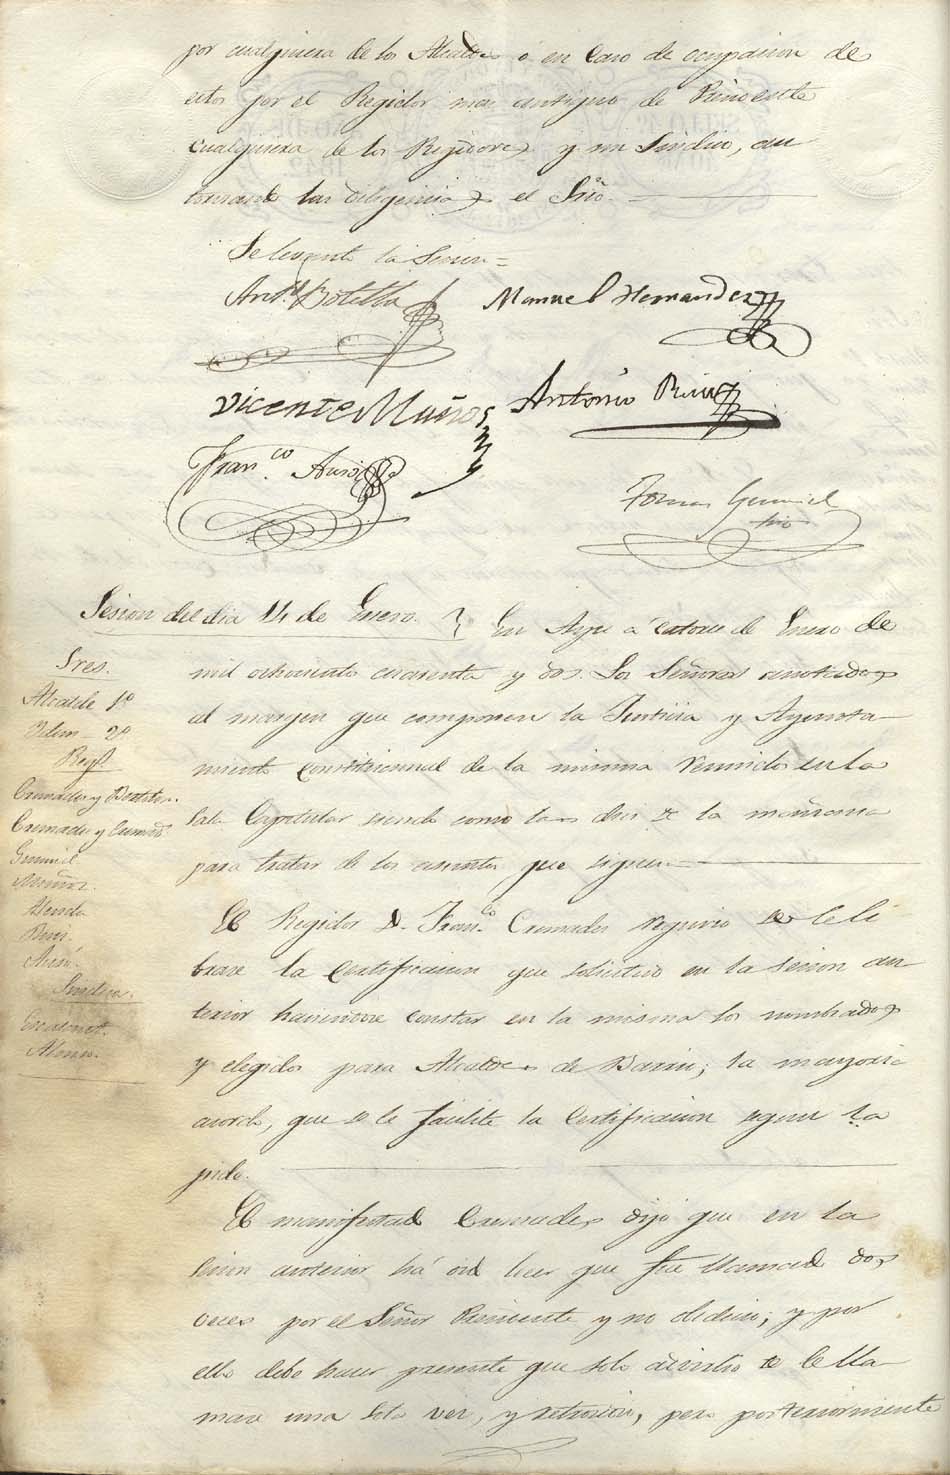 por cualquiera de los Alcaldes ó en caso de ocupacion de
estos por el Regidor mas antiguo de
cualquiera de los Regidores y un Sindico, au
torizando las diligencias el Srio.
Se levantó la Sesion=
Antº Botella
Manuel Hernandez
Vicente Muños
Antonio
Fran.co
Tomas Gumiel
Srio
Sesion del dia 14 de Enero.
Sres.
Alcalde 1º
Idem - 2º
Regs.
Cremades y Botella.
Cremades y
Gumiel
Muñoz.
Sindicos.
Alonso.
En Aspe á catorce de Enero de
mil ochociento cuarenta y dos. Los Señores anotados
al margen que componen la Justicia y Ayunta-
miento Constitucional de la misma reunidos en la
Sala Capitular siendo como las dies de la mañana
para tratar de los asuntos que siguen.
El Regidor D. Fran.co Cremades requirio se le li
brase la Certificacion que solicitó en la sesion an
terior haciendose constar en la misma los nombrados
y elegidos para Alcaldes de Barrio; la mayoria
acordó, que se le facilite la Certificacion segun la
pide.
El manifestado Cremades dijo que en la
sesion anterior há oido leer que fue llamado dos
veces por el Señor Presidente y no obedecio; y por
ello debe hacer presente que solo advirtio se le lla-
mase una sola vez, y retrocedio, pero posteriormente